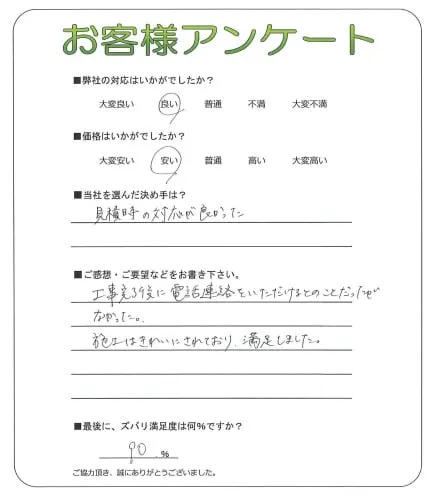 お客様アンケート
■弊社の対応はいかがでしたか?
大変良い 良い 普通 不満 大変不満
■価格はいかがでしたか?
大変安い 安い 普通 高い 大変高い
■当社を選んだ決め手は?
見積時の対応が良かった
■ご感想・ご要望などをお書き下さい。
工事完了後に電話連絡をいただけるとのことだったが
なかった。
施工はきれいにされており、満足しました。
■最後に、ズバリ満足度は何%ですか?
90 %
ご協力頂き、誠にありがとうございました。